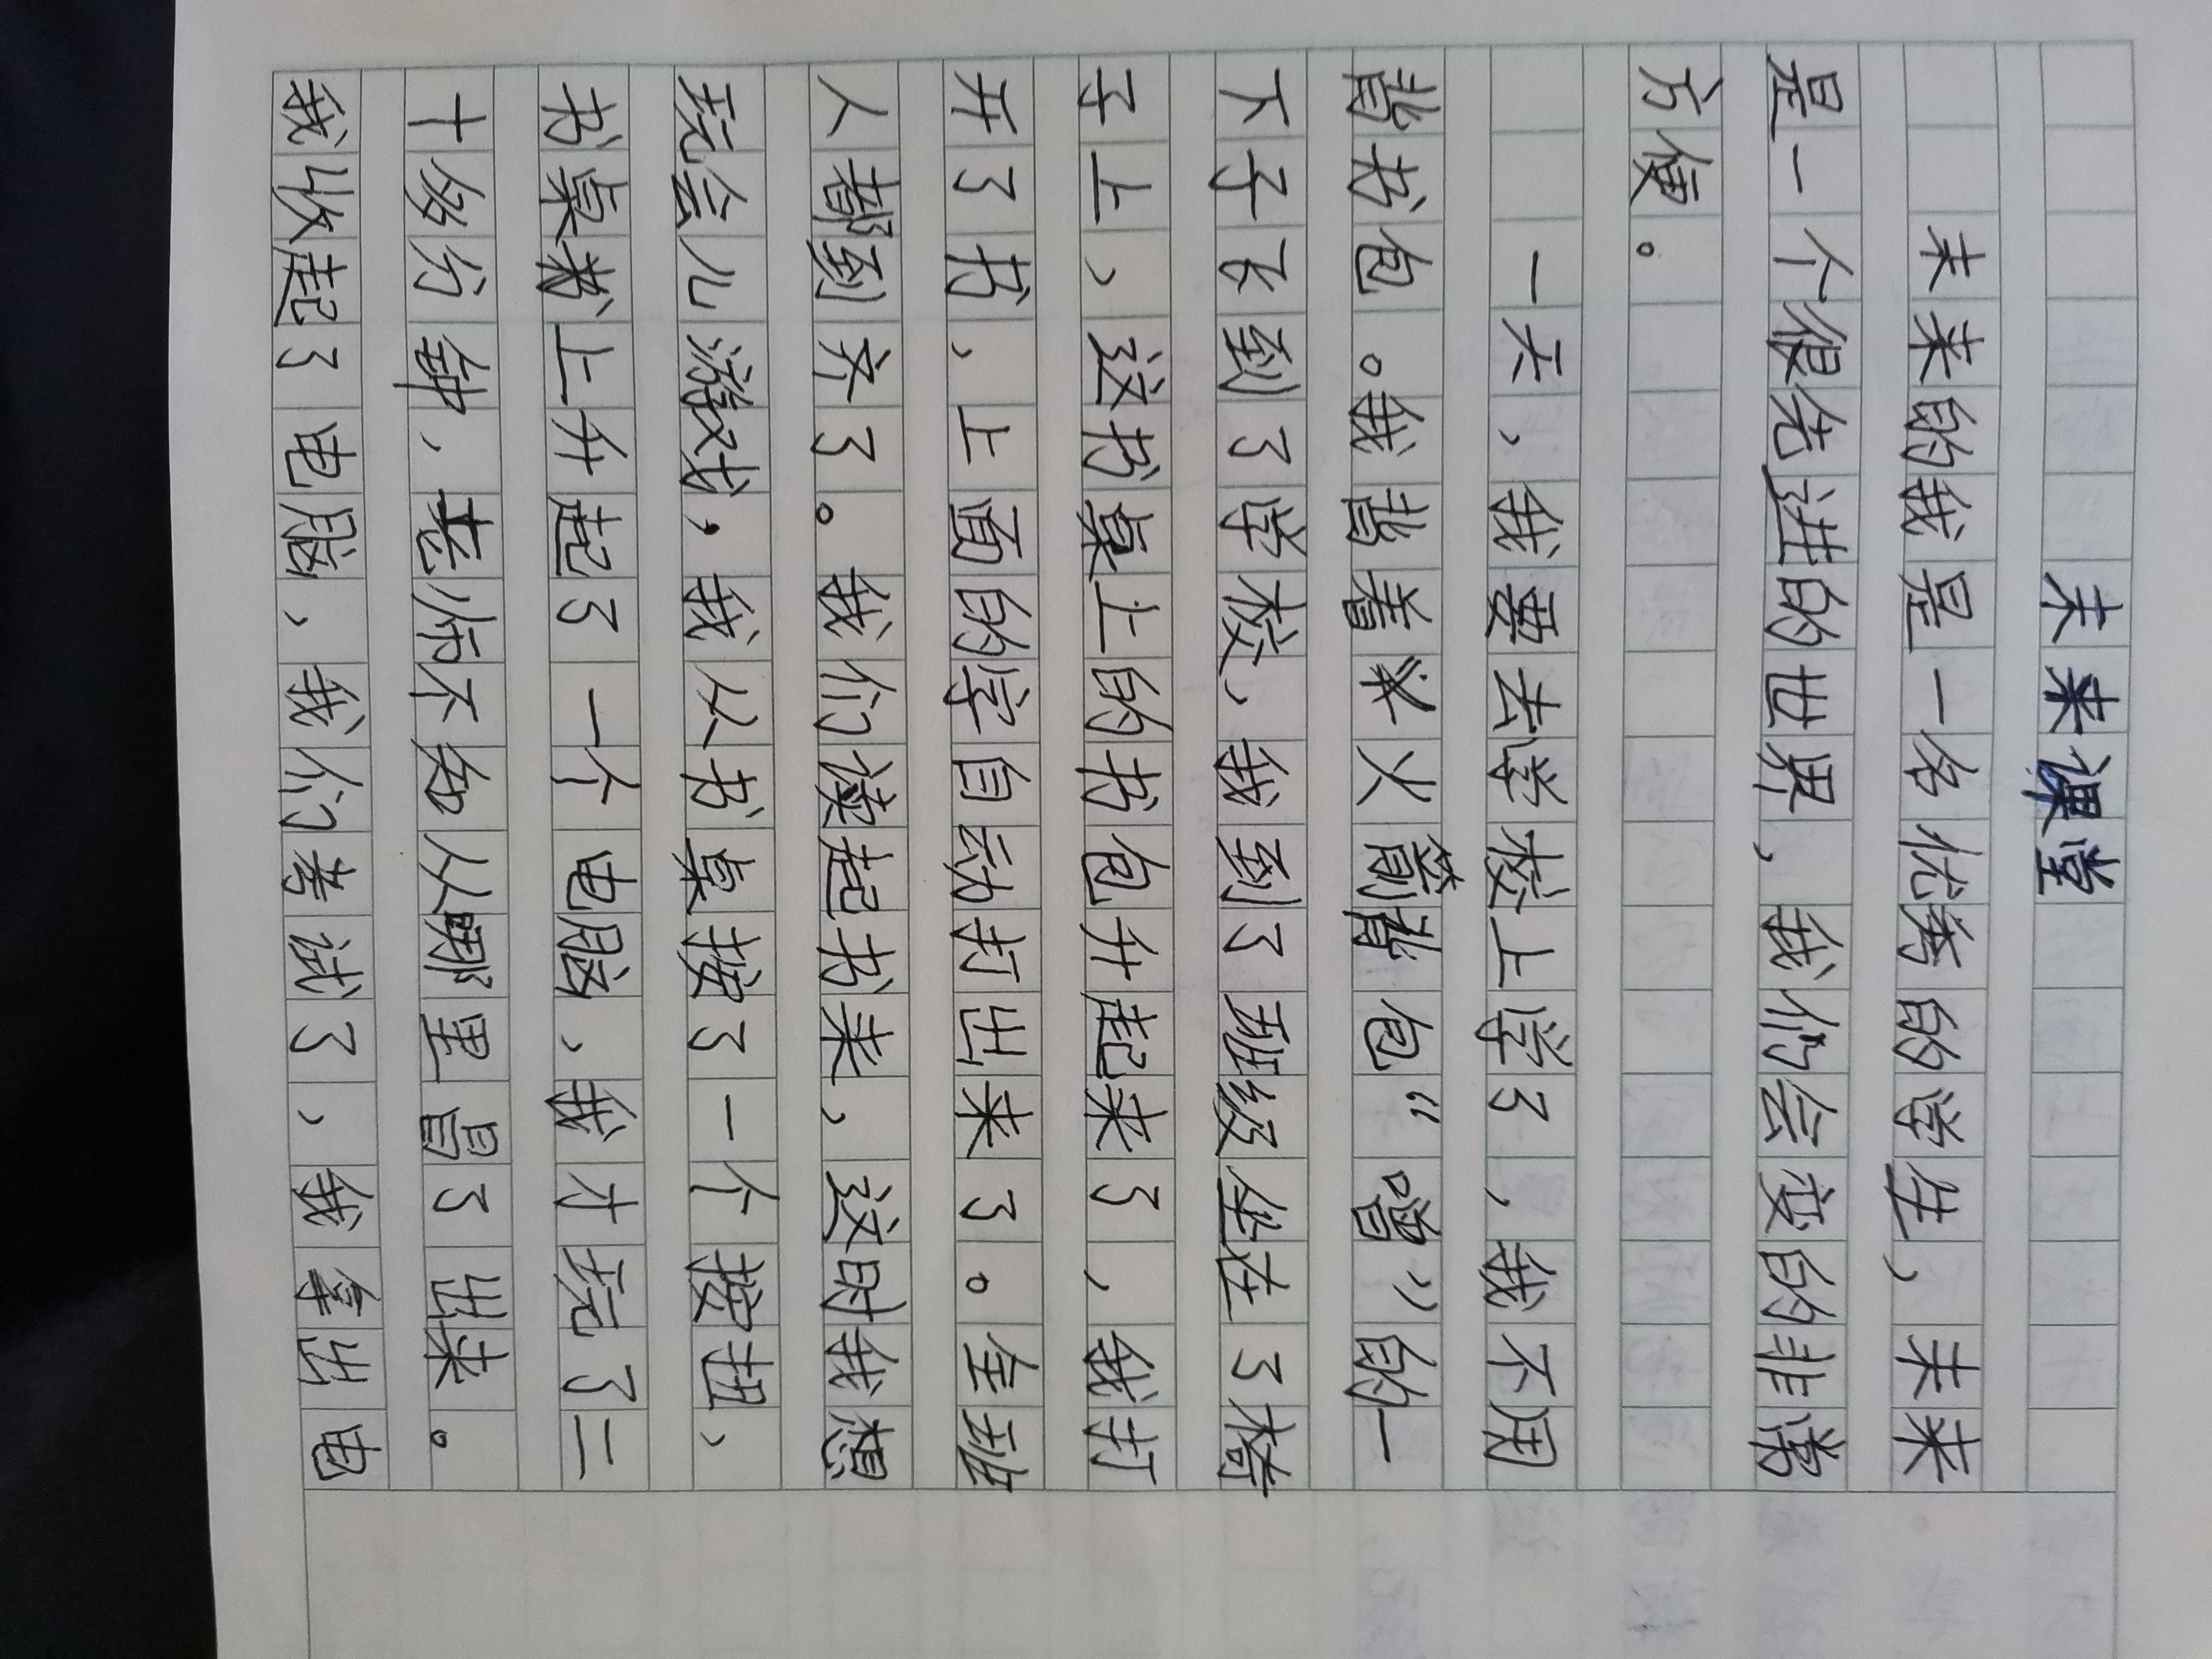 未来课堂
未来的我是一名优秀的学生，未来
是一个很先进的世界，我们会变的非常
方便。
一天，我要去学校上学了，我不用
背书包。我背着火箭背包“噌”的一
下子飞到了学校，我到了班级坐在了椅
子上，这书桌上的书包升起来了，我打
开了书，上面的字自动打出来了。全班
人都到齐了。我们读起书来，这时我想
玩会儿游戏，我从书桌按了一个按扭，
书桌上升起了一个电脑，我才玩了二
十多分钟，老师不知从哪里冒了出来。
我收起了电脑，我们考试了，我拿出电